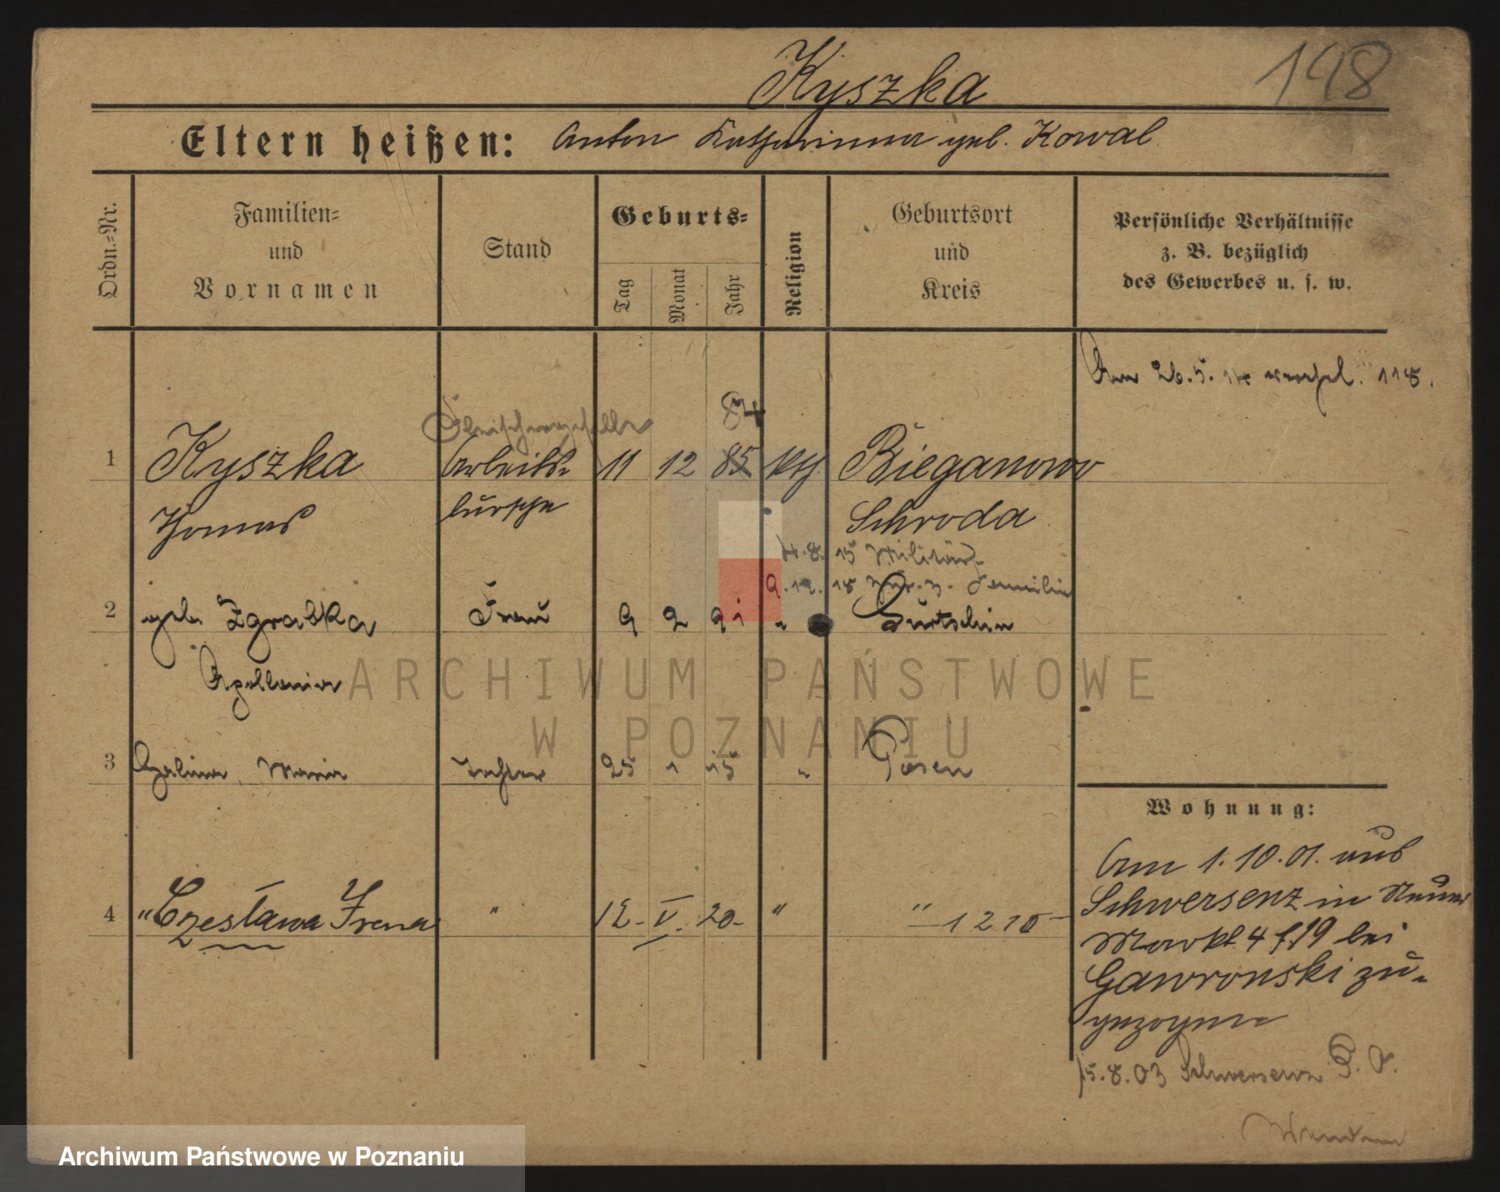 Kyszka
148
Eltern heißen: Anton Katharinna geb. Kowal
Ordn.=Nr.
Familien=
und
Vornamen
Stand
Geburts=
Tag
Monat
Jahr
Religion
Geburtsort
und
Kreis
Persönliche Verhältnisse
z. B. bezüglich
des Gewerbes u. s. w.
Am 26.5.14 118.
Fleischergeselle
84
1 Kyszka Arbeits= 11 12 85 kth Bieganowo
Thomas bursche Schroda
14.8.15 Militär
9.12.18 zur. z. Familie
2 geb. Zgralka Frau 9 2 91 "
Apollonia
3 Halina, Maria Tochter 25 1 15 " Posen
Wohnung:
4 " Czesława Irena " 12. V. 20. " " 1210
Am 1.10.01. aus
Schwersenz in Neuer
Markt 4 f 19 bei
Gawronski zu=
gezogen
15.8.03 Schwersenz
ARCHIWUM PAŃSTWOWE
W POZNANIU
Archiwum Państwowe w Poznaniu